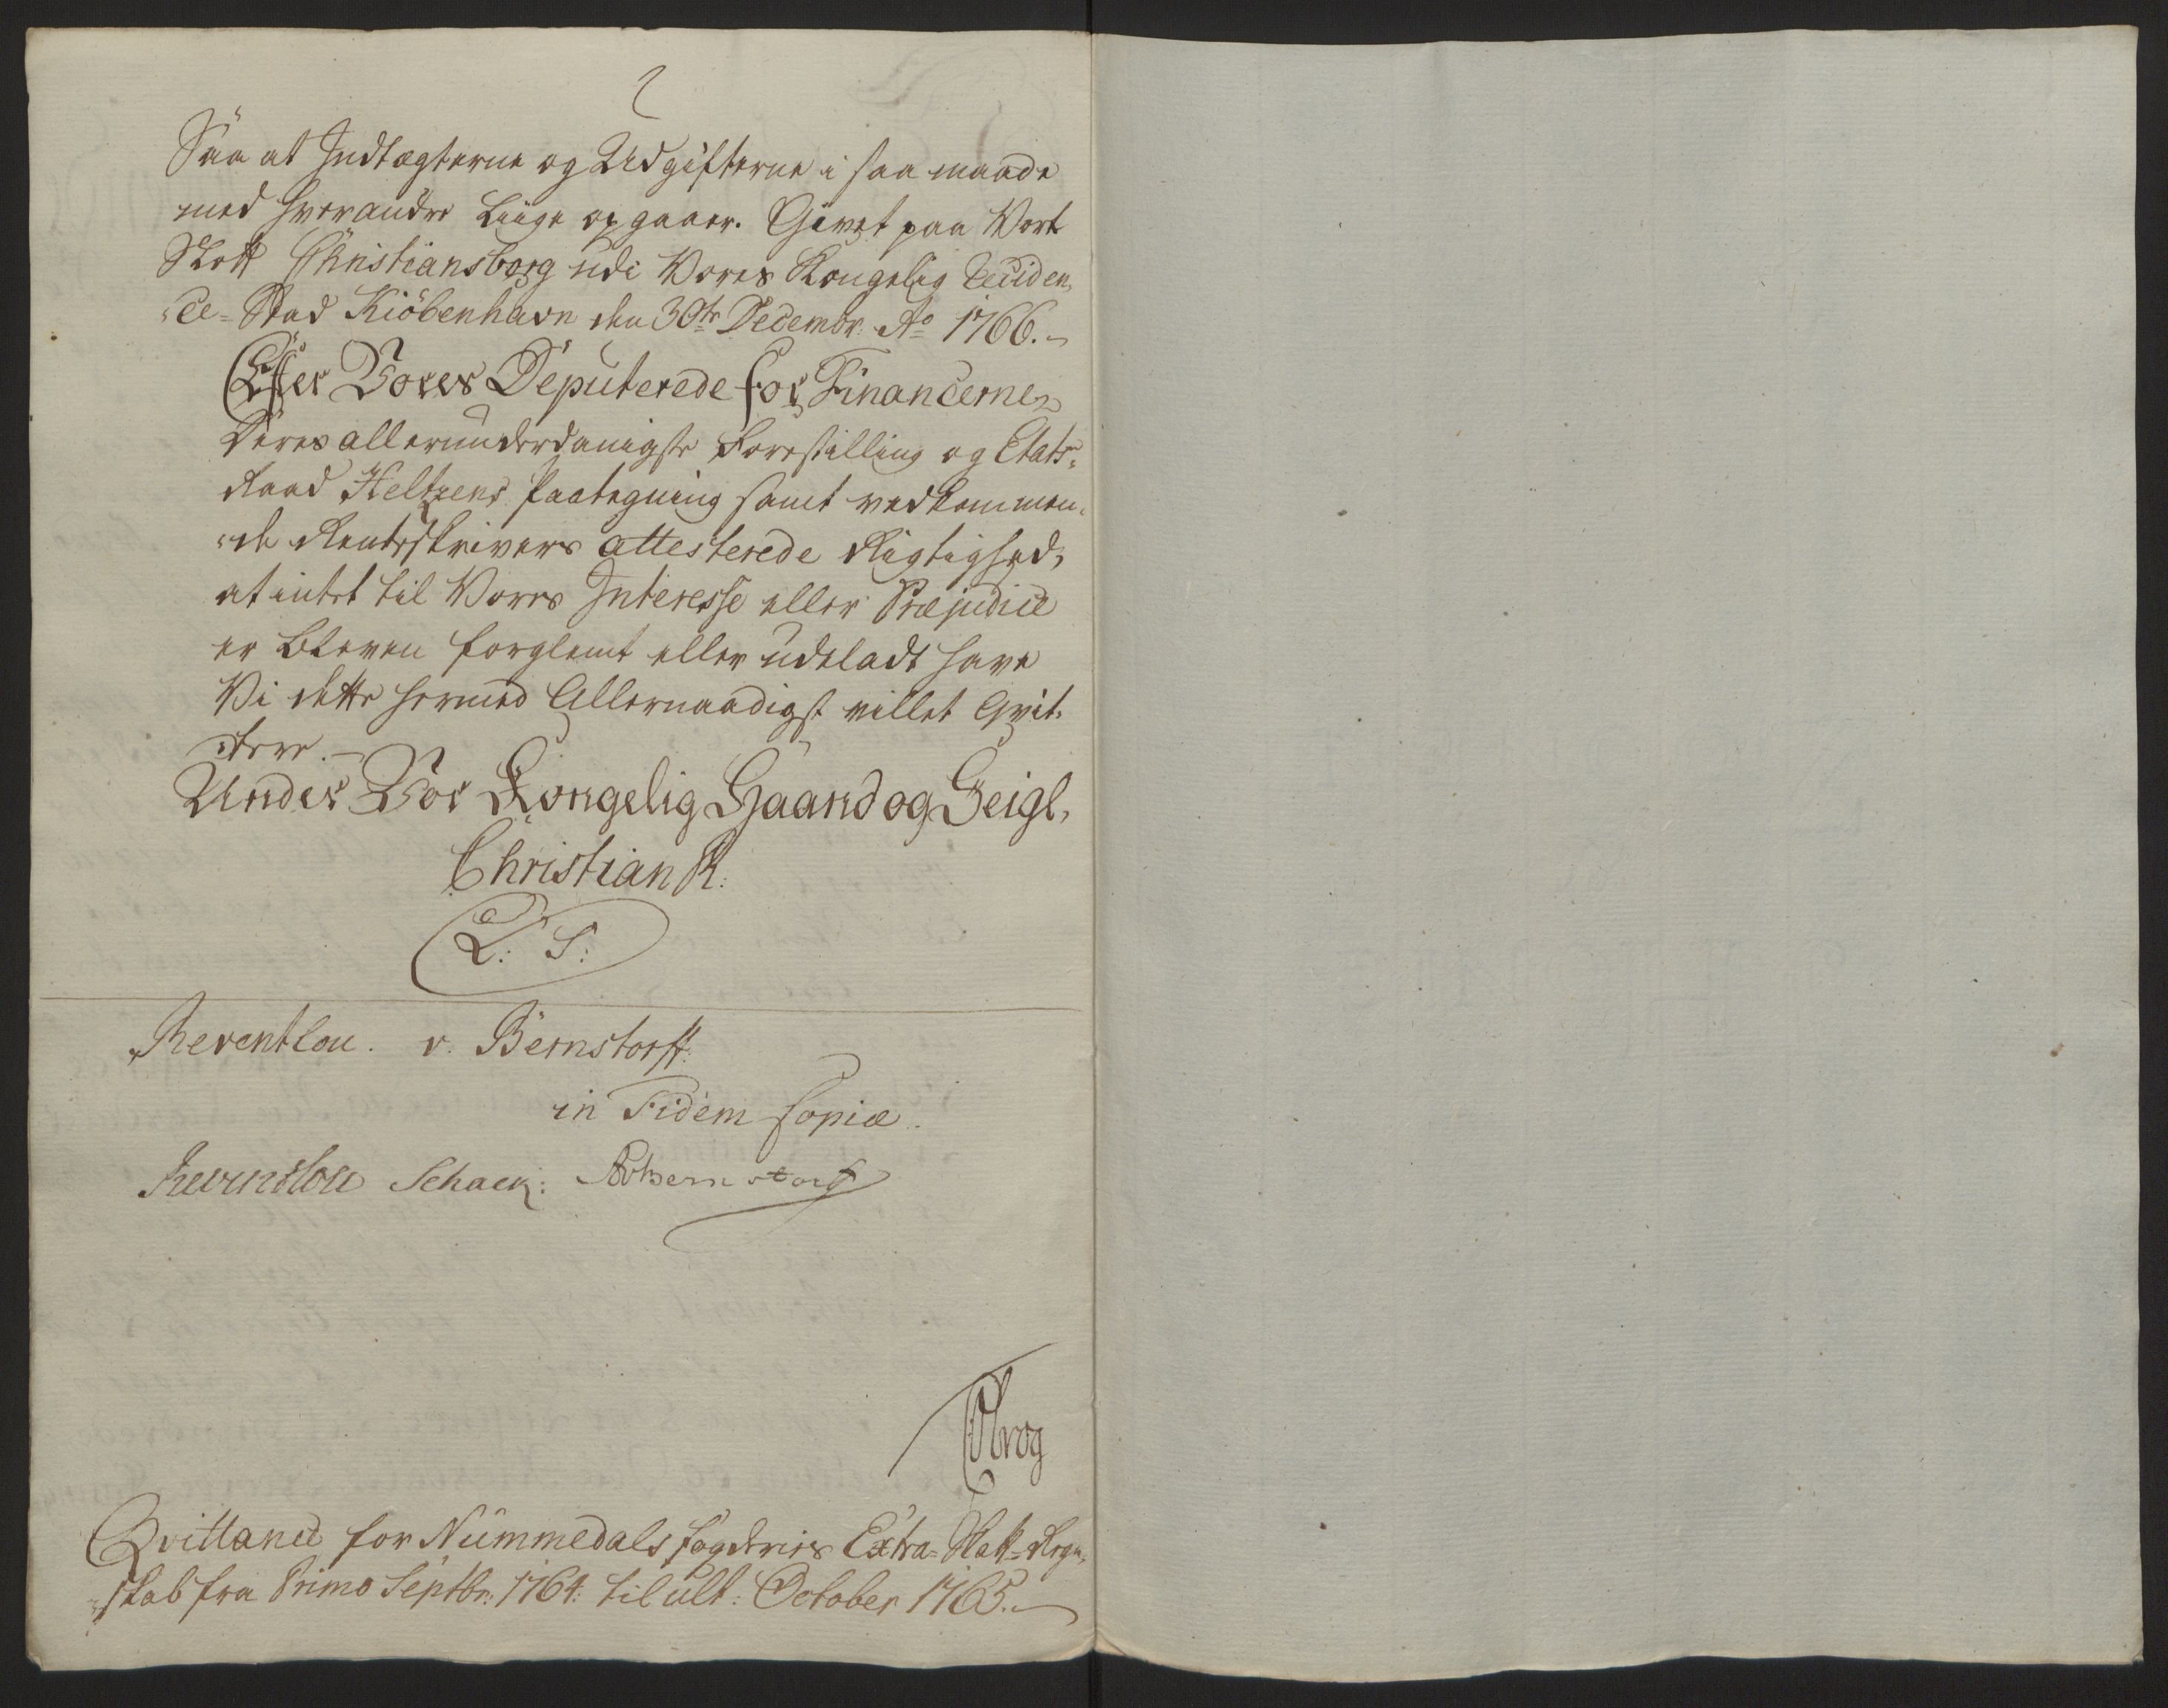 Saa at Indtægterne og Udgifterne i saa maade
med hverandre Liige opgaaer. Givet paa Vort
Slott Christiansborg udi Vores Kongelig Reciden¬
¬ce-Stad Kiöbenhavn den 30te Decembr. Ao 1766.
Efter Vores Deputerede for Financerne
Deres allerunderdanigste Forestilling og Etats¬
Raad Heltzens Paategning samt vedkommen¬
¬de Renteskrivers attesterede Rigtighed,
at intet til Vores Interesse eller Præjudice
er bleven forglemt eller udeladt have
Vi dette hermed Allernaadigst villet Qvit¬
tere.
Under Vor Kongelig Haand og Seigl,
Christian R:
L: S:
Reventlou. v. Bernstorff.
in Fidem Copiæ.
Reventlou Schack: Bernstorff
Qvittance for Nummedals Fogderies Extra-Skatt-Regn¬
¬skab fra Primo Septbr: 1764: til ult: October 1765.